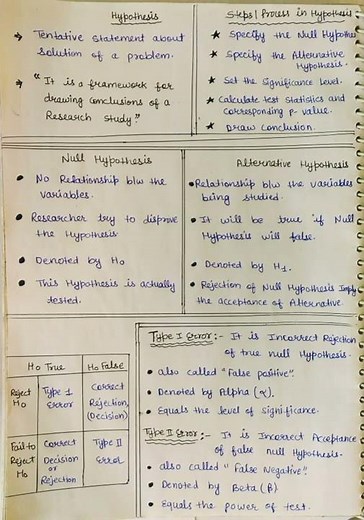 Hypothesis
→ Tentative statement about
solution of a problem.
→ "It is a framework for
drawing conclusions of a
Research study."
Steps | Process in Hypothesis
★ Specify the Null Hypothesis
★ Specify the Alternative
Hypothesis.
★ Set the Significance level.
★ Calculate test Statistics and
corresponding p-value.
★ Draw conclusion.
Null Hypothesis
• No Relationship b/w the
variables.
• Researcher try to disprove
the Hypothesis
• Denoted by H₀
• This Hypothesis is actually
tested.
Alternative Hypothesis
• Relationship b/w the variables
being studied.
• It will be true if Null
Hypothesis will false.
• Denoted by H₁.
• Rejection of Null Hypothesis Imply
the acceptance of Alternative.
H₀ True H₀ False
Reject
H₀
Type 1
Error
Correct
Rejection
(Decision)
Fail to
Reject
H₀
Correct
Decision
or
Rejection
Type II
Error
Type I Error:- It is Incorrect Rejection
of true null Hypothesis.
• also called "False positive".
• Denoted by Alpha (α).
• Equals the level of significance.
Type II Error:- It is Incorrect Acceptance
of false null Hypothesis.
• also called "False Negative".
• Denoted by Beta (β)
• Equals the power of test.